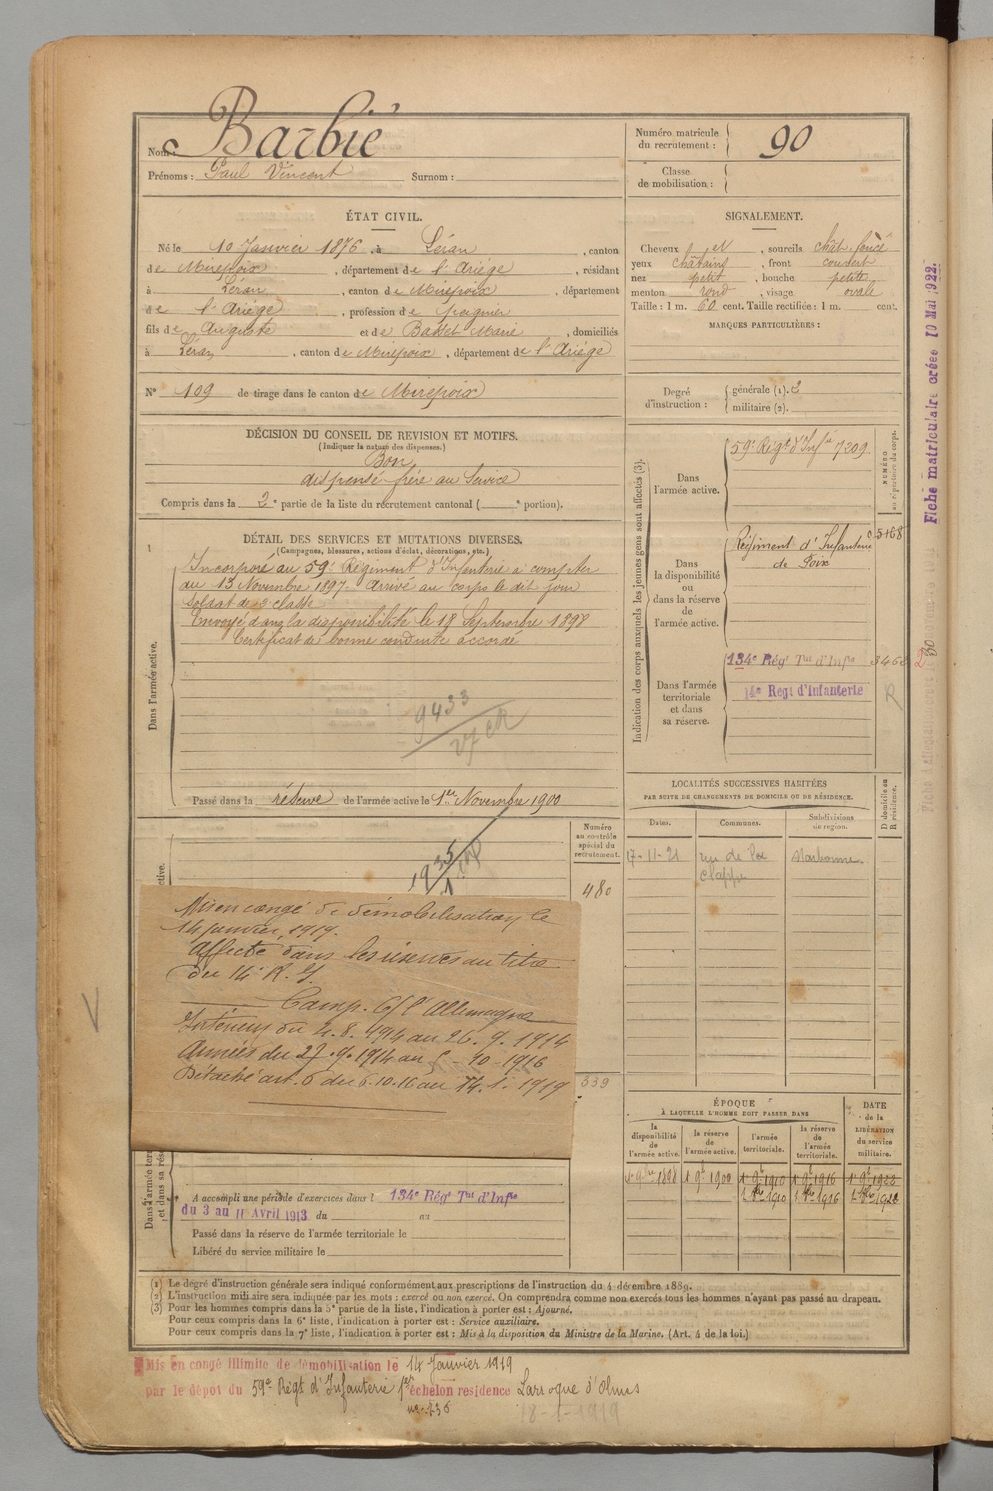 Nom : Barbié
Prénoms : Paul Vincent Surnom :
Numéro matricule du recrutement : 90
Classe de mobilisation :
ÉTAT CIVIL.
Né le 10 Janvier 1876, à Léran, canton
de Mirepoix, département de l'Ariège, résidant
à Léran, canton de Mirepoix, département
de l'Ariège, profession de
fils de Auguste et de Basset Marie, domiciliés
à Léran, canton de Mirepoix, département de l'Ariège
N° 109 de tirage dans le canton de Mirepoix
SIGNALEMENT.
Cheveux et sourcils chât. foncé
yeux châtains, front couvert
nez petit, bouche petite
menton rond, visage ovale
Taille : 1 m. 60 cent. Taille rectifiée : 1 m. cent.
MARQUES PARTICULIÈRES :
Degré d'instruction : générale (1). 2
militaire (2).
DÉCISION DU CONSEIL DE REVISION ET MOTIFS.
(Indiquer la nature des dispenses.)
Bon
dispensé frère au Service
Compris dans la 2e partie de la liste du recrutement cantonal ( e portion).
DÉTAIL DES SERVICES ET MUTATIONS DIVERSES.
(Campagnes, blessures, actions d'éclat, décorations, etc.)
Dans l'armée active.
Incorporé au 59e Régiment d'Infanterie à compter
du 13 Novembre 1897. Arrivé au corps le dit jour
Soldat de 2e classe
Envoyé dans la disponibilité le 18 Septembre 1898
Certificat de bonne conduite accordé
9433
Passé dans la réserve de l'armée active le 1er Novembre 1900
Indication des corps auxquels les jeunes gens sont affectés (3).
NUMÉRO au répertoire du corps.
Dans l'armée active.
59e Régt d'Infie 7209
Dans la disponibilité ou dans la réserve de l'armée active.
Régiment d'Infanterie
de Foix
Dans l'armée territoriale et dans sa réserve.
134e Régt Tal d'Infie
14e Regt d'Infanterie
Fiche matriculaire créée 10 Mai 1922.
LOCALITÉS SUCCESSIVES HABITÉES
PAR SUITE DE CHANGEMENTS DE DOMICILE OU DE RÉSIDENCE.
D domicile ou R résidence.
Dates. Communes. Subdivisions de région.
17-11-21 rue de la Clappe Narbonne
Numéro au contrôle spécial du recrutement.
480
1935
Mis en congé de démobilisation le
14 janvier 1919.
Affecté dans les réserves au titre
du 14e R. I.
Camp. C/ l'Allemagne
Intérieur du 4.8.1914 au 26.9.1914
Armées du 27.9.1914 au 5-10-1916
Détaché art. 6 du 6.10.16 au 14.1.1919
339
A accompli une période d'exercices dans l 134e Régt Tal d'Infie
du 3 au 11 Avril 1913 du au
Passé dans la réserve de l'armée territoriale le
Libéré du service militaire le
ÉPOQUE
À LAQUELLE L'HOMME DOIT PASSER DANS
la disponibilité de l'armée active. la réserve de l'armée active. l'armée territoriale. la réserve de l'armée territoriale.
DATE de la LIBÉRATION du service militaire.
1 9bre 1898 1 9bre 1900 1 9bre 1910 1 9bre 1916 1 9bre 1922
(1) Le degré d'instruction générale sera indiqué conformément aux prescriptions de l'instruction du 4 décembre 1889.
(2) L'instruction militaire sera indiquée par les mots : exercé ou non exercé. On comprendra comme non exercés tous les hommes n'ayant pas passé au drapeau.
(3) Pour les hommes compris dans la 5e partie de la liste, l'indication à porter est : Ajourné.
Pour ceux compris dans la 6e liste, l'indication à porter est : Service auxiliaire.
Pour ceux compris dans la 7e liste, l'indication à porter est : Mis à la disposition du Ministre de la Marine. (Art. 4 de la loi.)
Mis en congé illimité de démobilisation le 14 Janvier 1919
par le dépôt du 59e Régt d'Infanterie 1er échelon residence Larroque d'Olmes
18-1-1919